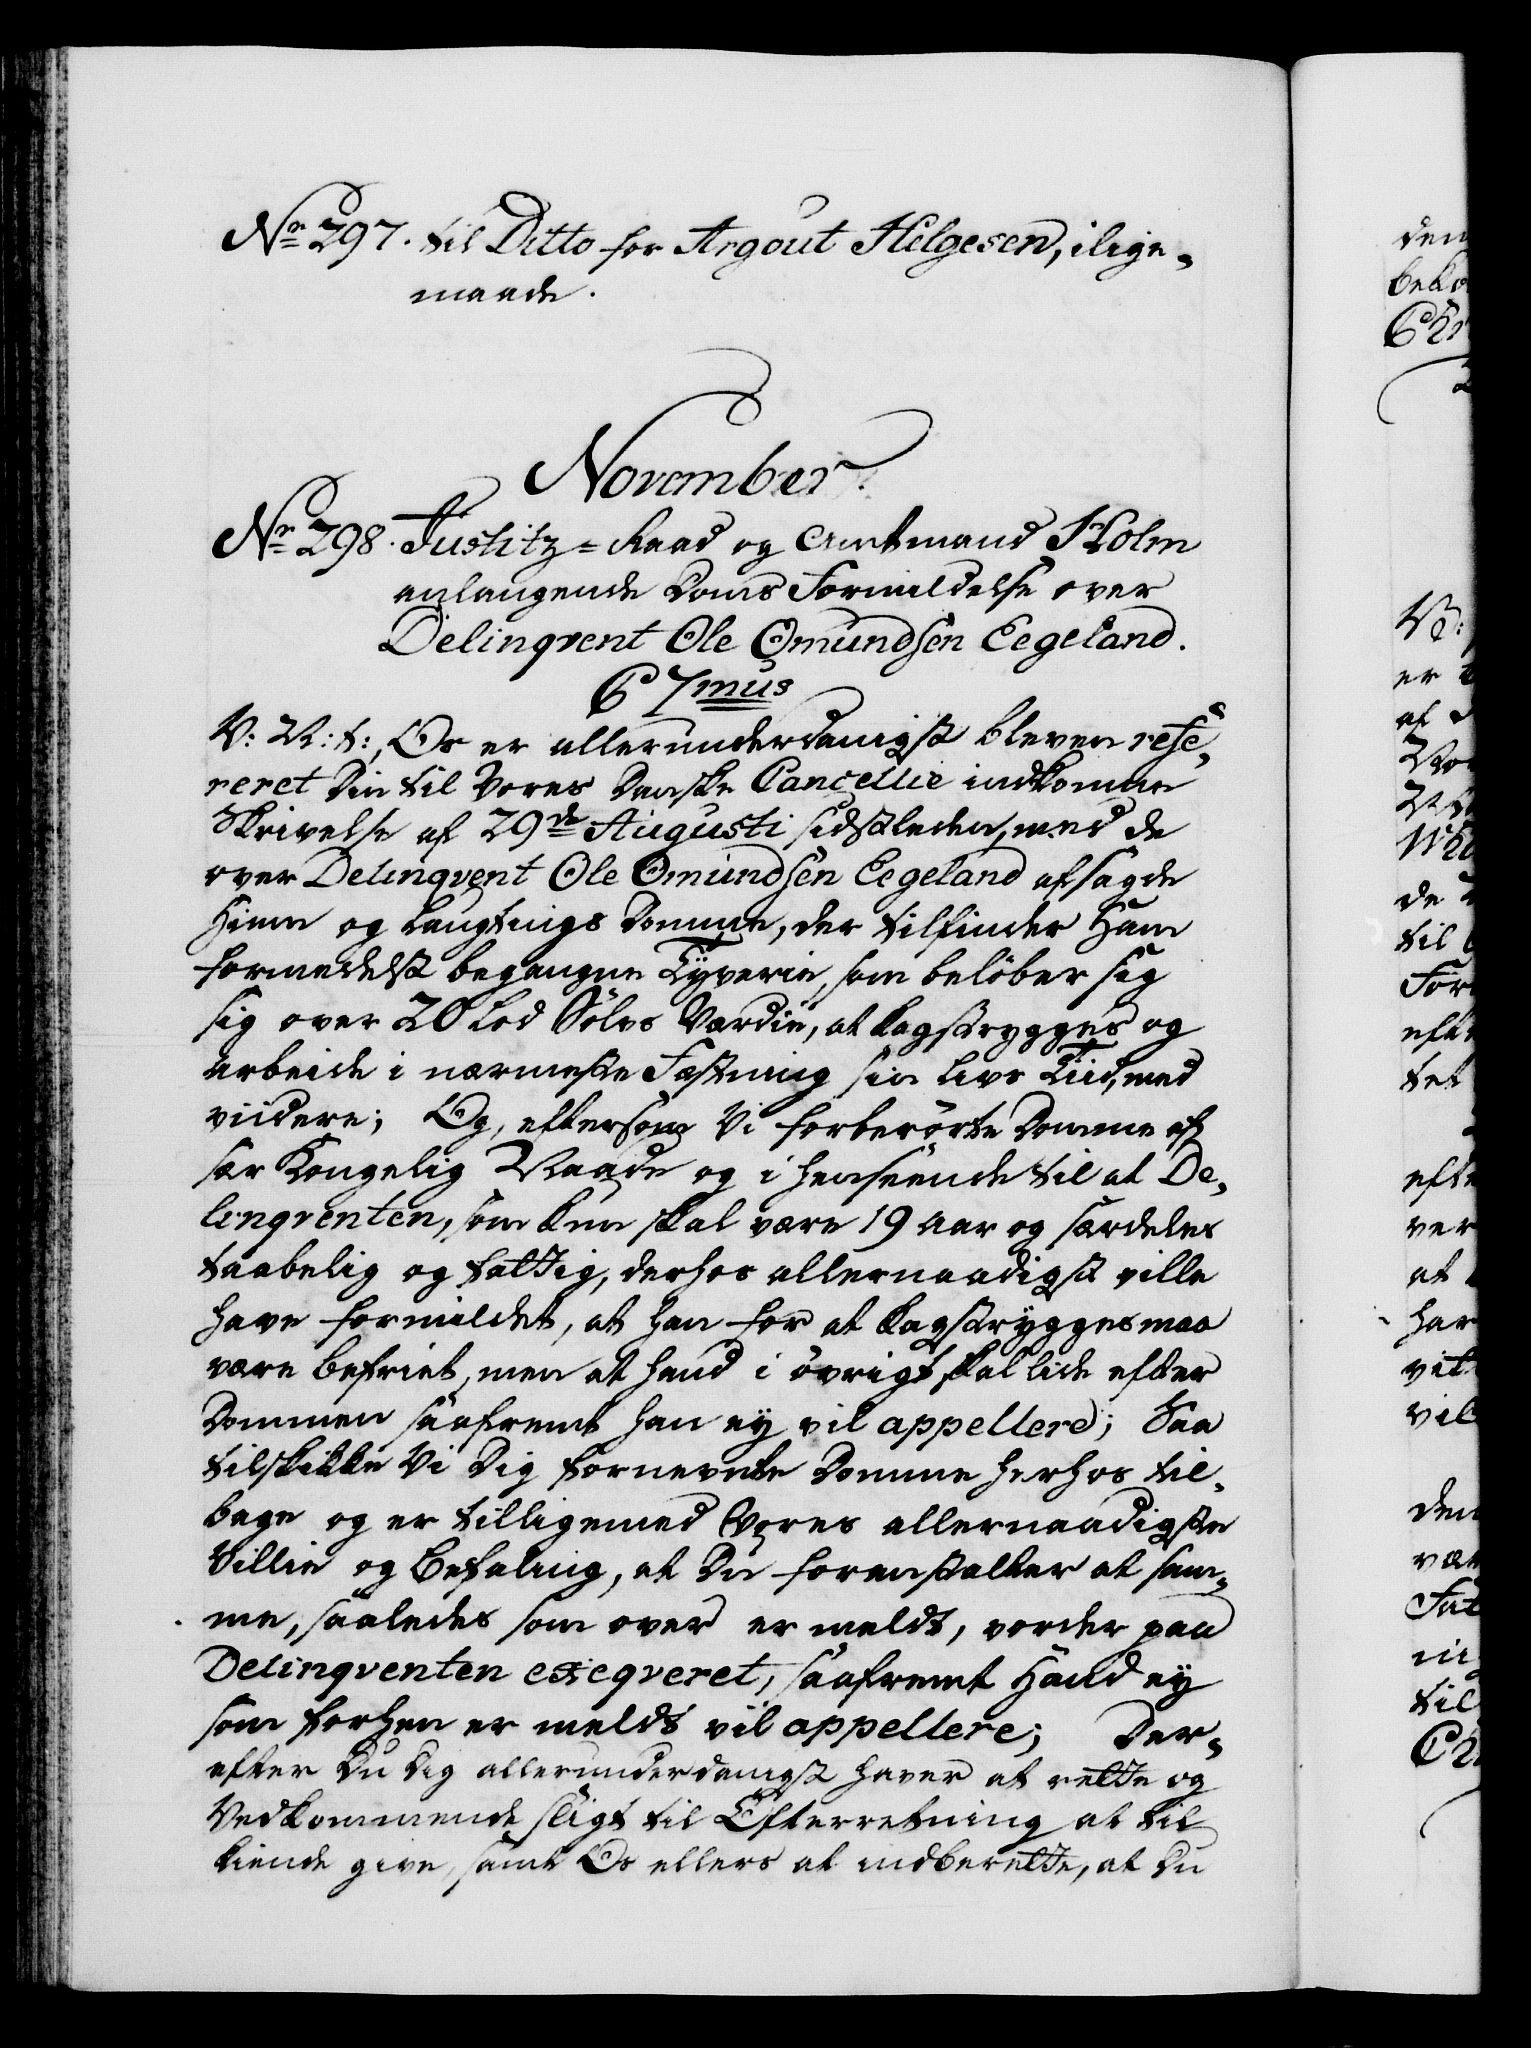 No 297. til Ditto for Argout Helgesen, ilige-
maade.
November.
No 298. Justitz-Raad og Amtmand Holm
anlangende Doms Formildelse over
Delinqvent Ole Omundsen Eegeland.
C 7mus
V: V: t:, Os er allerunderdanigst bleven refe-
reret Din til Vores Danske Cancellie indkomne
Skrivelse af 29de Augusti sidstleden, med de
over Delinqvent Ole Omundsen Eegeland afsagde
Hiem og Laugtings Domme, der tilfinder Ham
formedelst begangne Tyverie, som beløber sig
sig over 20 Lod Sølvs Værdie, at kagstryges og
arbeide i nærmeste Fæstning sin Livs Tiid, med
viidere; Og, eftersom Vi forberørte Domme af
sær Kongelig Naade og i henseende til at De-
linqventen, som kun skal være 19 Aar og særdeles
taabelig og fattig, derhos allernaadigst ville
have formildet, at han for at kagstryges maa
være befriet, men at hand i øvrigt skal lide efter
Dommen saafremt han ey vil appellere; Saa
tilskikke Vi Dig fornevnte Domme herhos til-
bage og er tilligemed Vores allernaadigste
Villie og Befaling, at Du foranstalter at sam-
me, saaledes som over er meldt, vorder paa
Delinqventen exeqveret, saafremt Hand ey
som forhen er meldt vil appellere; Der-
efter Du Dig allerunderdanigst haver at rette og
Vedkommende sligt til Efterretning at til
kiende give, samt Os ellers at indberette, at Du
den
beko
Chr
er
af
de
til
For
efte
tet
efte
ver
at
har
vit
vil
den
vær
Fat
til
Ch